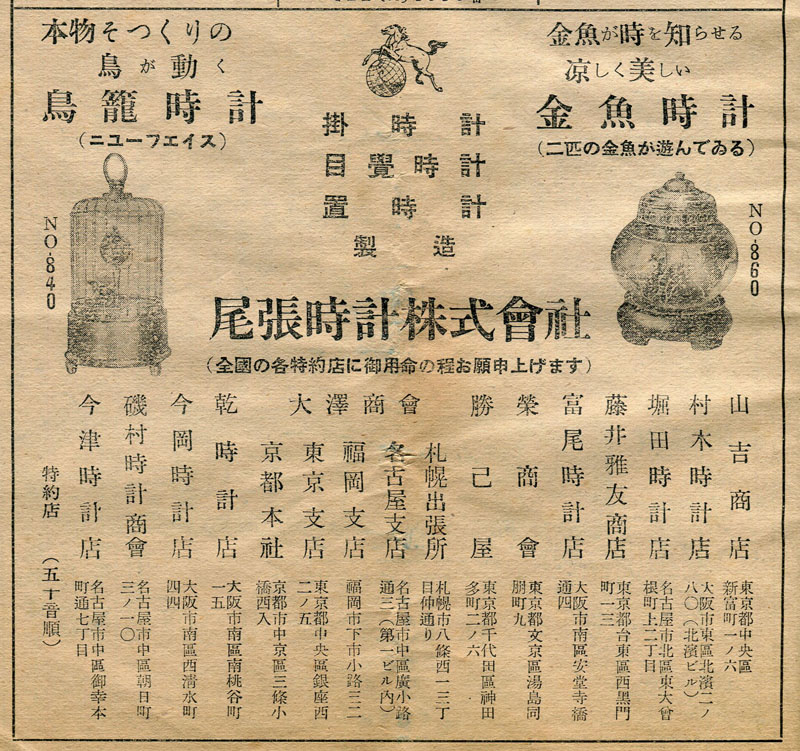 金魚が時を知らせる
凉しく美しい
金魚時計
(二匹の金魚が遊んでゐる)
NO.860
掛時計
目覺時計
置時計
製造
本物そつくりの
鳥が動く
鳥籠時計
(ニューフェイス)
NO.840
尾張時計株式會社
(全國の各特約店に御用命の程お願申上げます)
山吉商店
東京都中央區
新富町一ノ六
村木時計店
大阪市東區北濱二ノ
八〇(北濱ビル)
堀田時計店
名古屋市北區東大曾
根町上二丁目
藤井雅友商店
東京都台東區西黑門
町一三
富尾時計店
大阪市南區安堂寺橋
通四
榮商會
東京都文京區湯島同
朋町九
勝己屋
東京都千代田區神田
多町二ノ六
大澤商會
札幌出張所
札幌市八條西一三丁
目仲通り
名古屋支店
名古屋市中區廣小路
通三(第一ビル內)
福岡支店
福岡市下市小路三二
東京支店
東京都中央區銀座西
二ノ五
京都本社
京都市中京區三條小
橋西入
乾時計店
大阪市南區南桃谷町
一五
今岡時計店
大阪市南區西清水町
四四
磯村時計商會
名古屋市中區朝日町
三ノ一〇
今津時計店
名古屋市中區御幸本
町通七丁目
特約店 (五十音順)